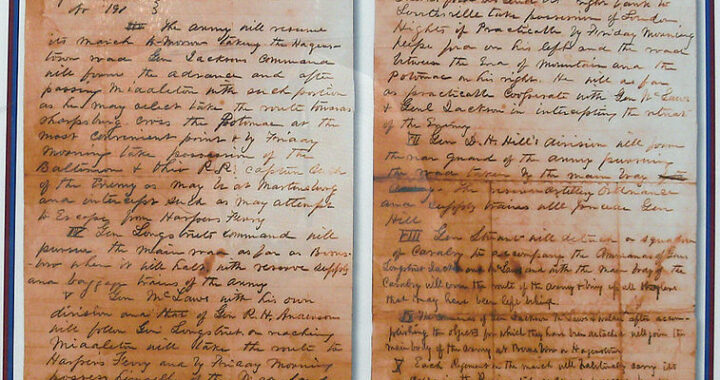 No 191
III The Army will resume
its march to morrow taking the Hagers-
town road Gen Jacksons Command
will form the advance and after
passing Middleton with such portion
as he may select take the route towards
sharpsburg cross the Potomac at the
most convenient point & by Friday
Morning take possession of the
Baltimore & Ohio R.R. capture such
of the Enemy as may be at Martinsburg
and intercept such as may attempt
to Escape from Harpers Ferry
IV Gen Longstreets command will
pursue the main road as far as Boons-
boro where it will halt with reserve supply
and baggage trains of the army
V Gen McLaws with his own
division and that of Gen R. H. Anderson
will follow Gen Longstreet on reaching
Middleton will take the route to
Harpers Ferry and by Friday Morning
possess himself of the
right bank to
Lovettsville take possession of Loudon
Heights if Practicable by Friday Morning
Keeps ford on his left and the road
between the End of Mountain and the
Potomac on his right. He will as far
as practicable Cooperate with Gen McLaws
& Genl Jackson in intercepting the retreat
of the Enemy
VII Gen D. H. Hill's division will form
the rear guard of the army pursuing
the road taken by the main body
The reserve artillery Ordnance
and supply trains will precede Gen
Hill
VIII Gen Stuart will detach a squadron
of Cavalry to accompany the Commands of Gens
Longstreet Jackson and McLaws and with the main body of the
Cavalry will cover the route of the Army & bring up all stragglers
that may have been left behind
IX The commands of Gen Jackson McLaws & Walker after accom-
plishing the objects for which they have been detached will join the
main body of the army at Boonsboro or Hagerstown
X Each Regiment on the march will habitually carry its